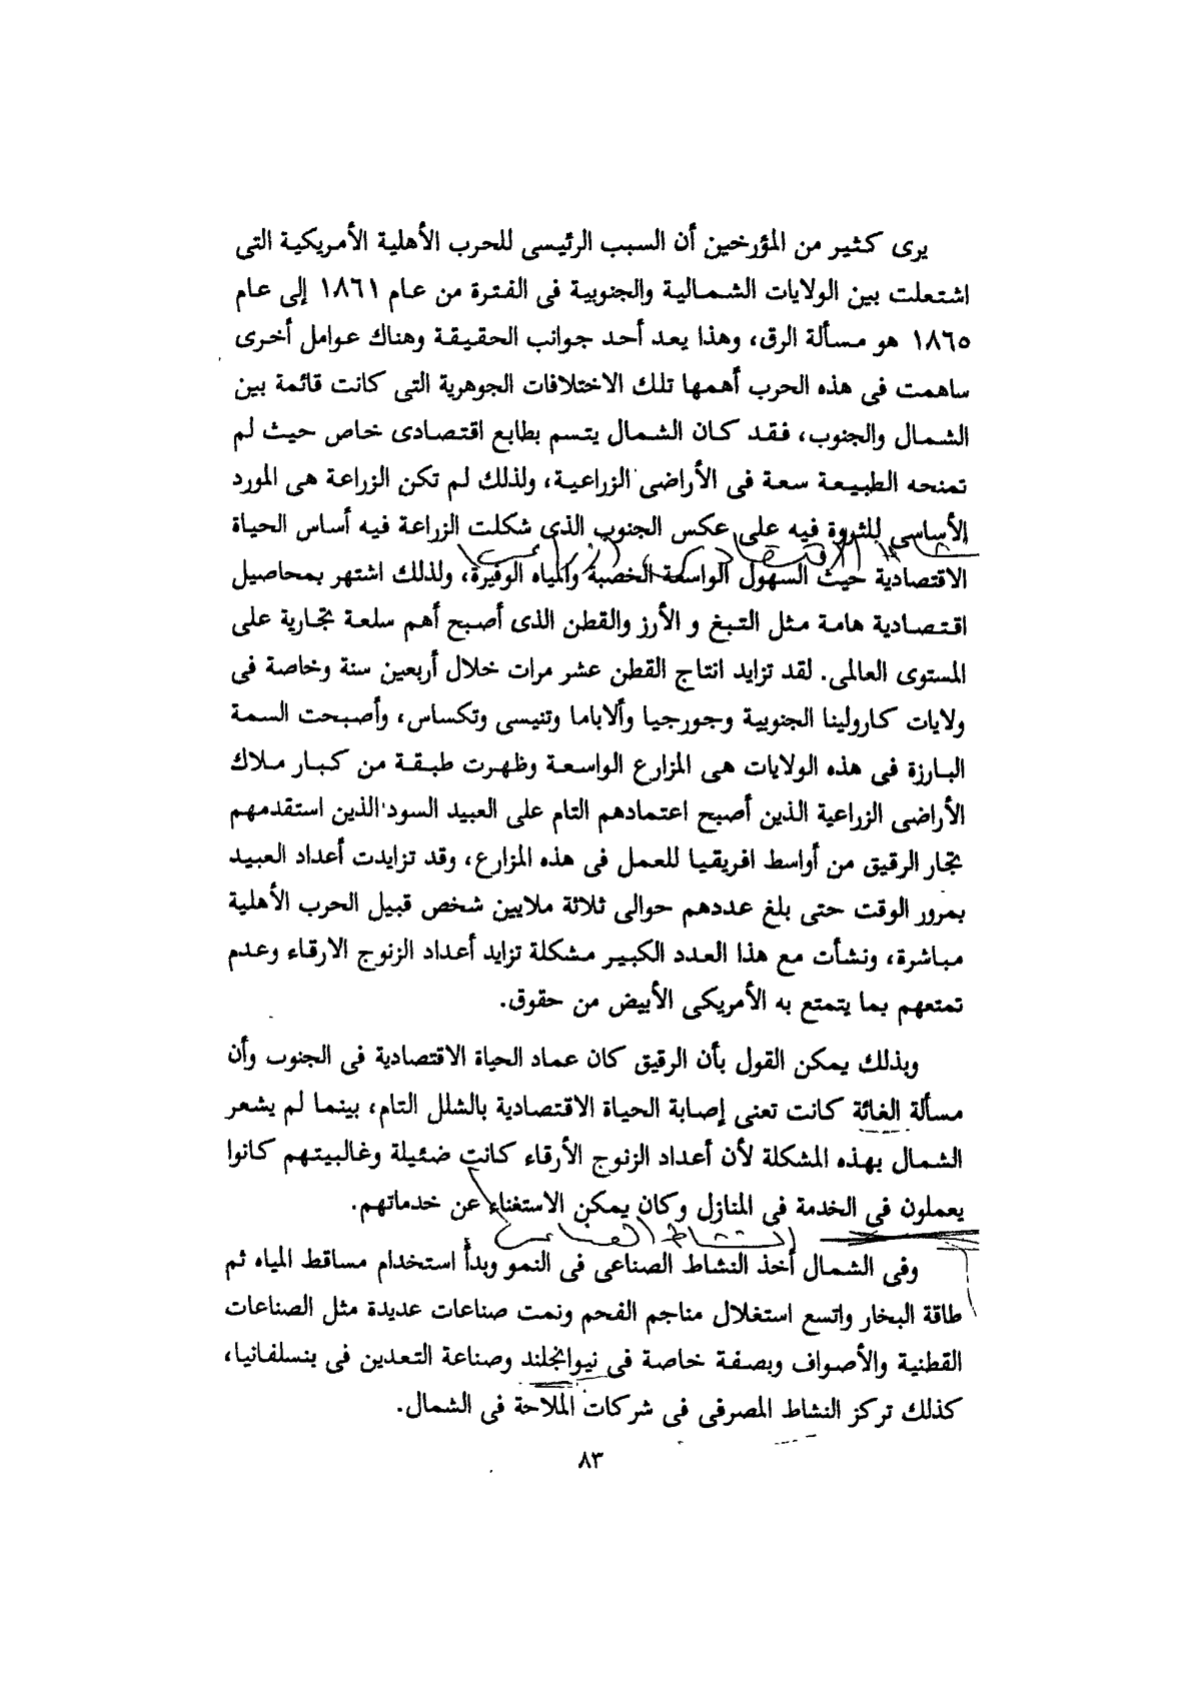 يرى كثير من المؤرخين أن السبب الرئيسى للحرب الأهلية الأمريكية التى
اشتعلت بين الولايات الشمالية والجنوبية فى الفترة من عام ١٨٦١ إلى عام
١٨٦٥ هو مسألة الرق، وهذا يعد أحد جوانب الحقيقة وهناك عوامل أخرى
ساهمت فى هذه الحرب أهمها تلك الاختلافات الجوهرية التى كانت قائمة بين
الشمال والجنوب، فقد كان الشمال يتسم بطابع اقتصادى خاص حيث لم
تمنحه الطبيعة سعة فى الأراضى الزراعية، ولذلك لم تكن الزراعة هى المورد
الأساسى للثروة فيه على عكس الجنوب الذى شكلت الزراعة فيه أساس الحياة
الاقتصادية حيث السهول الواسعة الخصبة والمياه الوفيرة، ولذلك اشتهر بمحاصيل
اقتصادية هامة مثل التبغ و الأرز والقطن الذى أصبح أهم سلعة تجارية على
المستوى العالمى. لقد تزايد انتاج القطن عشر مرات خلال أربعين سنة وخاصة فى
ولايات كارولينا الجنوبية وجورجيا وألاباما وتنيسى وتكساس، وأصبحت السمة
البارزة فى هذه الولايات هى المزارع الواسعة وظهرت طبقة من كبار ملاك
الأراضى الزراعية الذين أصبح اعتمادهم التام على العبيد السود الذين استقدمهم
تجار الرقيق من أواسط افريقيا للعمل فى هذه المزارع، وقد تزايدت أعداد العبيد
بمرور الوقت حتى بلغ عددهم حوالى ثلاثة ملايين شخص قبيل الحرب الأهلية
مباشرة، ونشأت مع هذا العدد الكبير مشكلة تزايد أعداد الزنوج الارقاء وعدم
تمتعهم بما يتمتع به الأمريكى الأبيض من حقوق.
وبذلك يمكن القول بأن الرقيق كان عماد الحياة الاقتصادية فى الجنوب وأن
مسألة الغائة كانت تعنى إصابة الحياة الاقتصادية بالشلل التام، بينما لم يشعر
الشمال بهذه المشكلة لأن أعداد الزنوج الأرقاء كانت ضئيلة وغالبيتهم كانوا
يعملون فى الخدمة فى المنازل وكان يمكن الاستغناء عن خدماتهم.
النشاط الصناعى
وفى الشمال أخذ النشاط الصناعى فى النمو وبدأ استخدام مساقط المياه ثم
طاقة البخار واتسع استغلال مناجم الفحم ونمت صناعات عديدة مثل الصناعات
القطنية والأصواف وبصفة خاصة فى نيوانجلند وصناعة التعدين فى ينسلفانيا،
كذلك تركز النشاط المصرفى فى شركات الملاحة فى الشمال.
٨٣